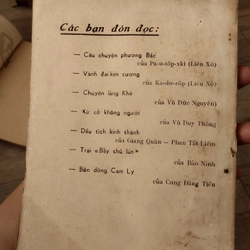 Các bạn đón đọc:
— Câu chuyện phương Bắc
của Pa-u-tốp-xki (Liên Xô)
— Vành đai kim cương
của Ka-đư-rốp (Liên Xô)
— Chuyện làng Khò
của Vũ Đức Nguyên
— Kú cổ không người
của Vũ Duy Thông
— Dấu tích kinh thành
của Giang Quân — Phan Tất Liêm
— Trại «Bảy chú lùn»
của Bảo Ninh
— Bên dòng Cam Ly
của Cung Đăng Tiến